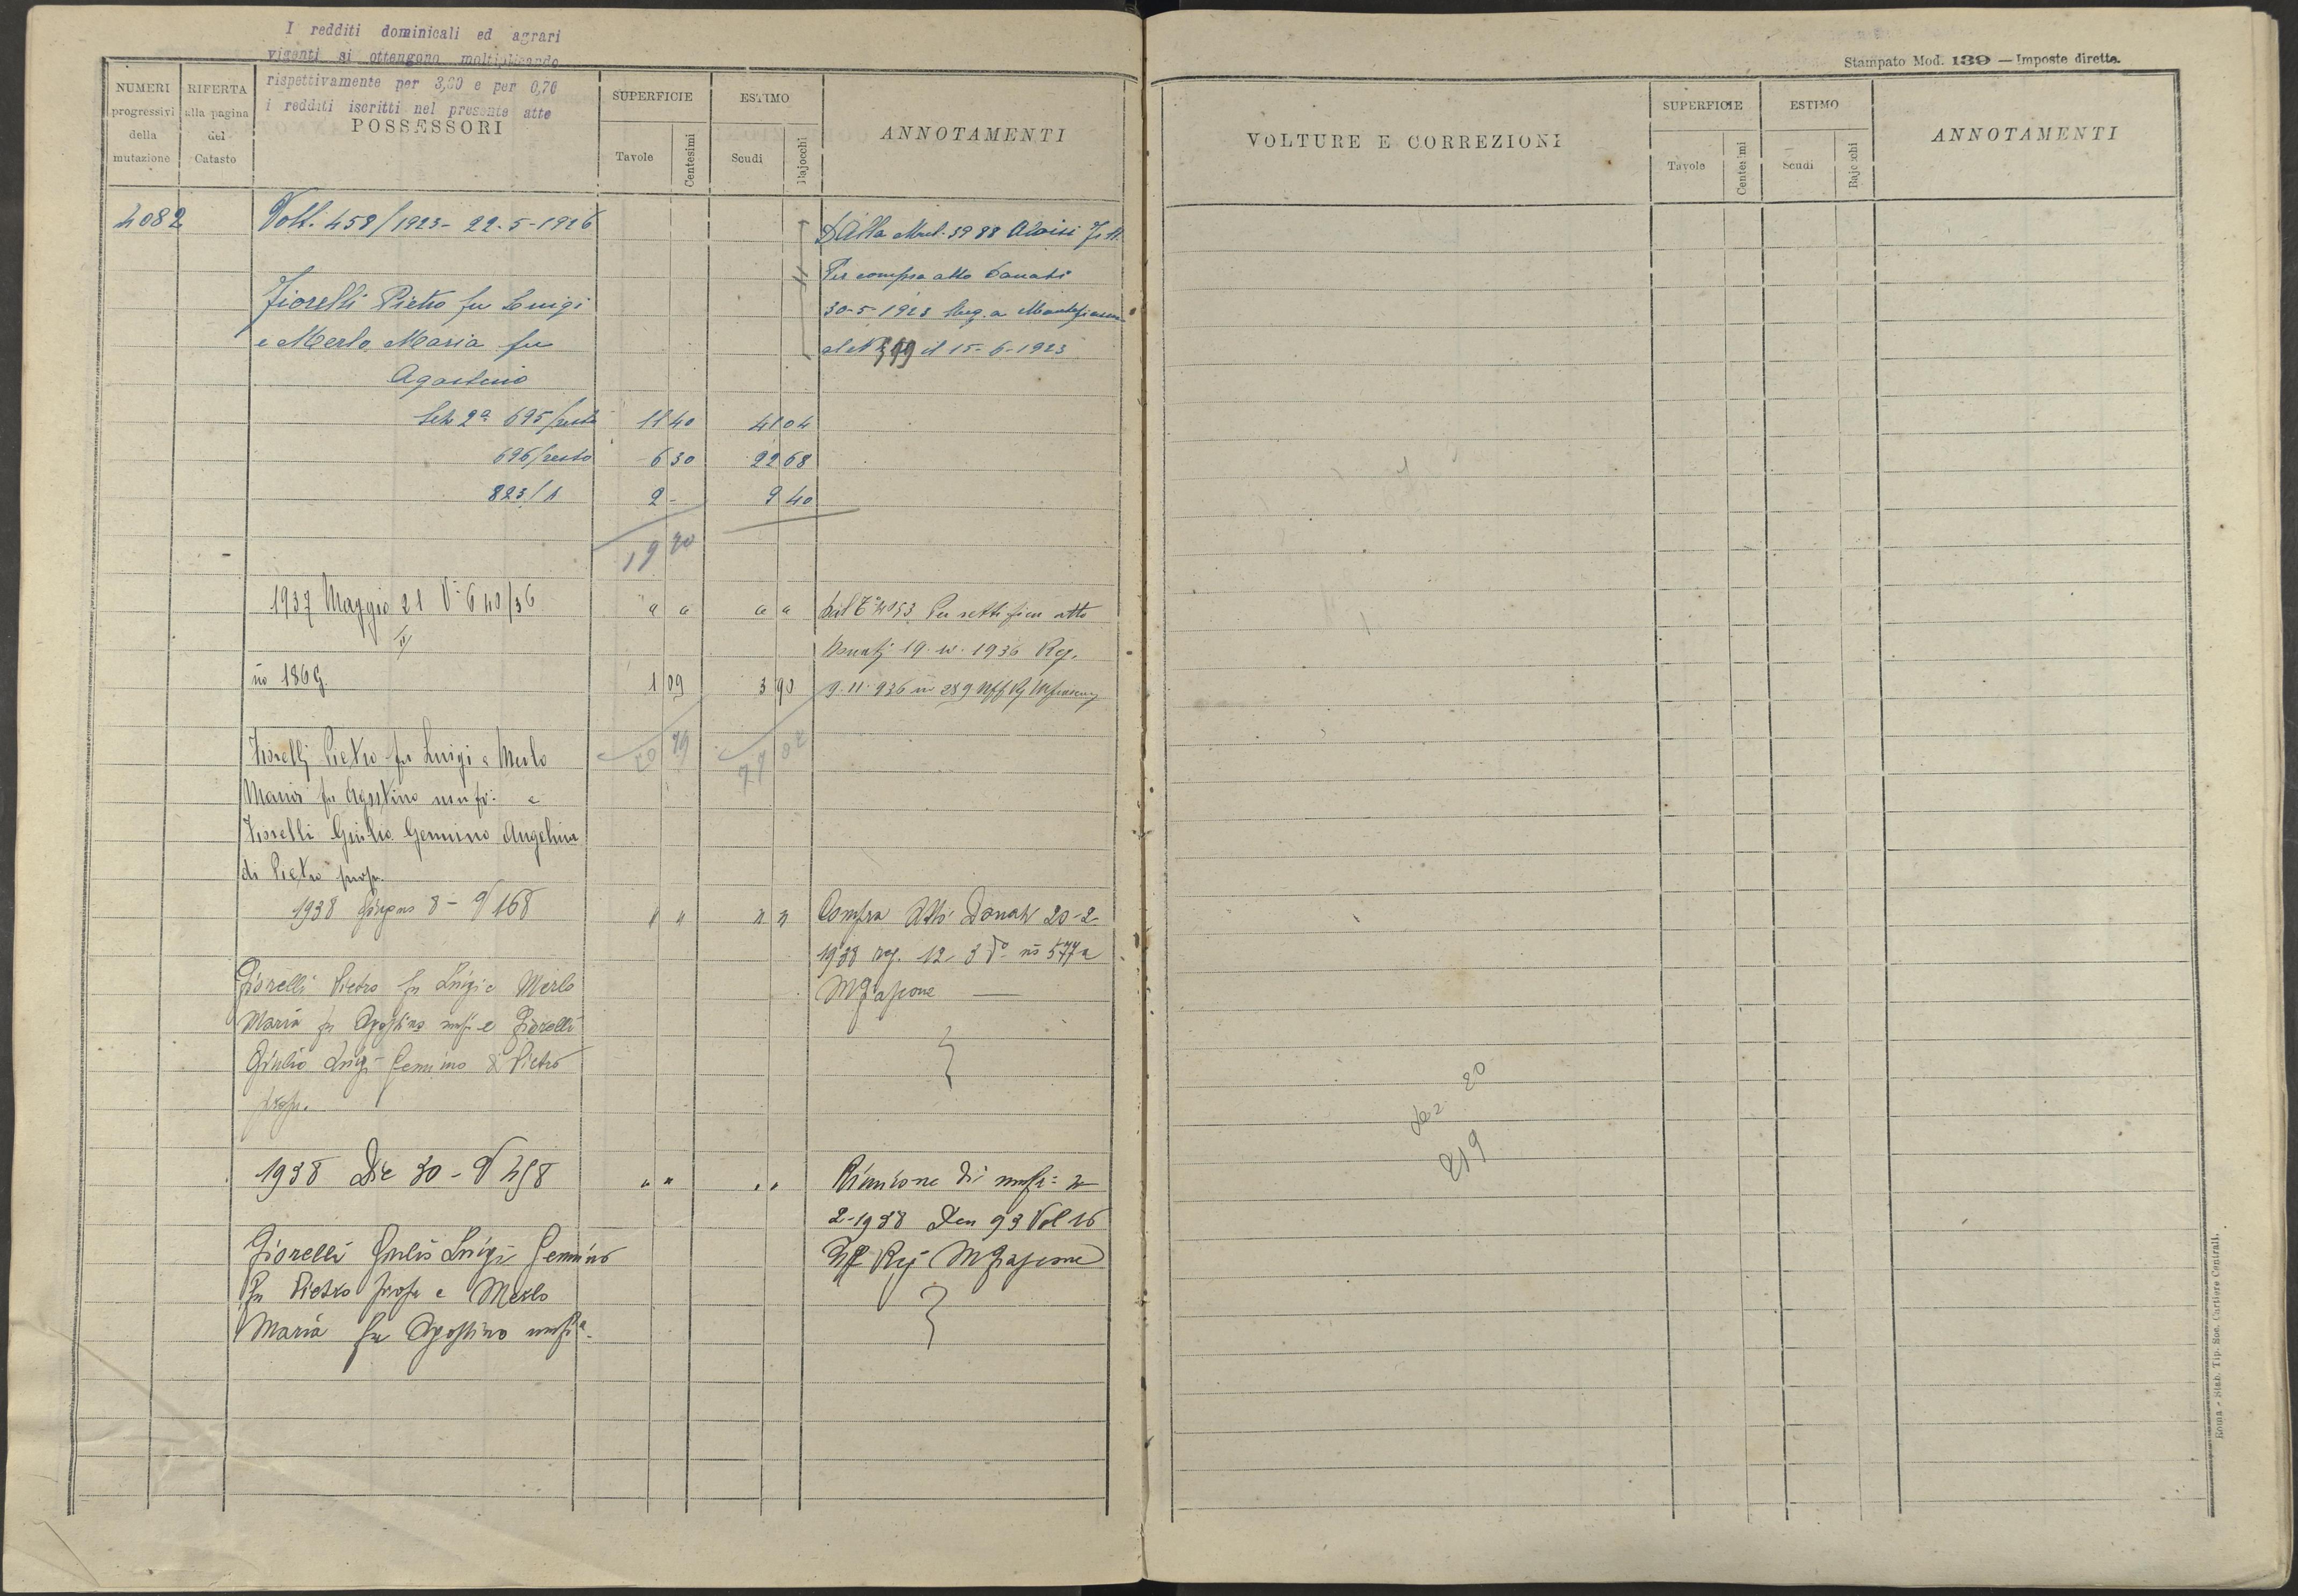 I redditi dominicali ed agrari
vigenti si ottengono moltiplicando
rispettivamente per 3,60 e per 0,70
i redditi iscritti nel presente atto
NUMERI progressivi della mutazione
RIFERTA alla pagina del Catasto
POSSESSORI
SUPERFICIE
Tavole
Centesimi
ESTIMO
Scudi
Bajocchi
ANNOTAMENTI
4082 Volt. 458/1923 - 22-5-1926
Dalla Mut. 3988 Aloisi
Per compra atto Donati
30-5-1923 Reg. a Montefiascone
al N il 15-6-1923
Fiorelli Pietro fu Luigi
e Merlo Maria fu
Agostino
Sez 2ª 695/resto 11 40 41 04
696/resto 6 30 22 68
823/1 2 - 9 40
19 70
1937 Maggio 21 Vª 640/36 " " " " Dal 4053 Per rettifica atto
Donati 19. 10. 1936 Reg.
nº 1869 1 09 3 90 9. 11. 936 nº 289 Uff Rg
20 79 77 02
Fiorelli Pietro fu Luigi e Merlo
Maria fu Agostino usufr: e
Fiorelli Giulio Gemino Angelina
di Pietro propr.
1938 Giugno 8 - V 168 " " " " Compra Atto Donati 20-2-
1938 reg. 12 3 dº nº 577 a
Mfiascone
Fiorelli Pietro fu Luigi e Merlo
Maria fu Agostino usufr e Fiorelli
Giulio Luigi Gemino di Pietro
propr.
1938 Dic 30 - V 458 " " " " Riunione di usufr:
2-1938 Den 93 Vol 16
Uff Reg Mfiascone
Fiorelli Giulio Luigi Gemino
fu Pietro propr e Merlo
Maria fu Agostino usufrª.
Stampato Mod. 139 — Imposte dirette.
VOLTURE E CORREZIONI
SUPERFICIE
Tavole
Centesimi
ESTIMO
Scudi
Bajocchi
ANNOTAMENTI
20
219
Roma - Stab. Tip. Soc. Cartiere Centrali.